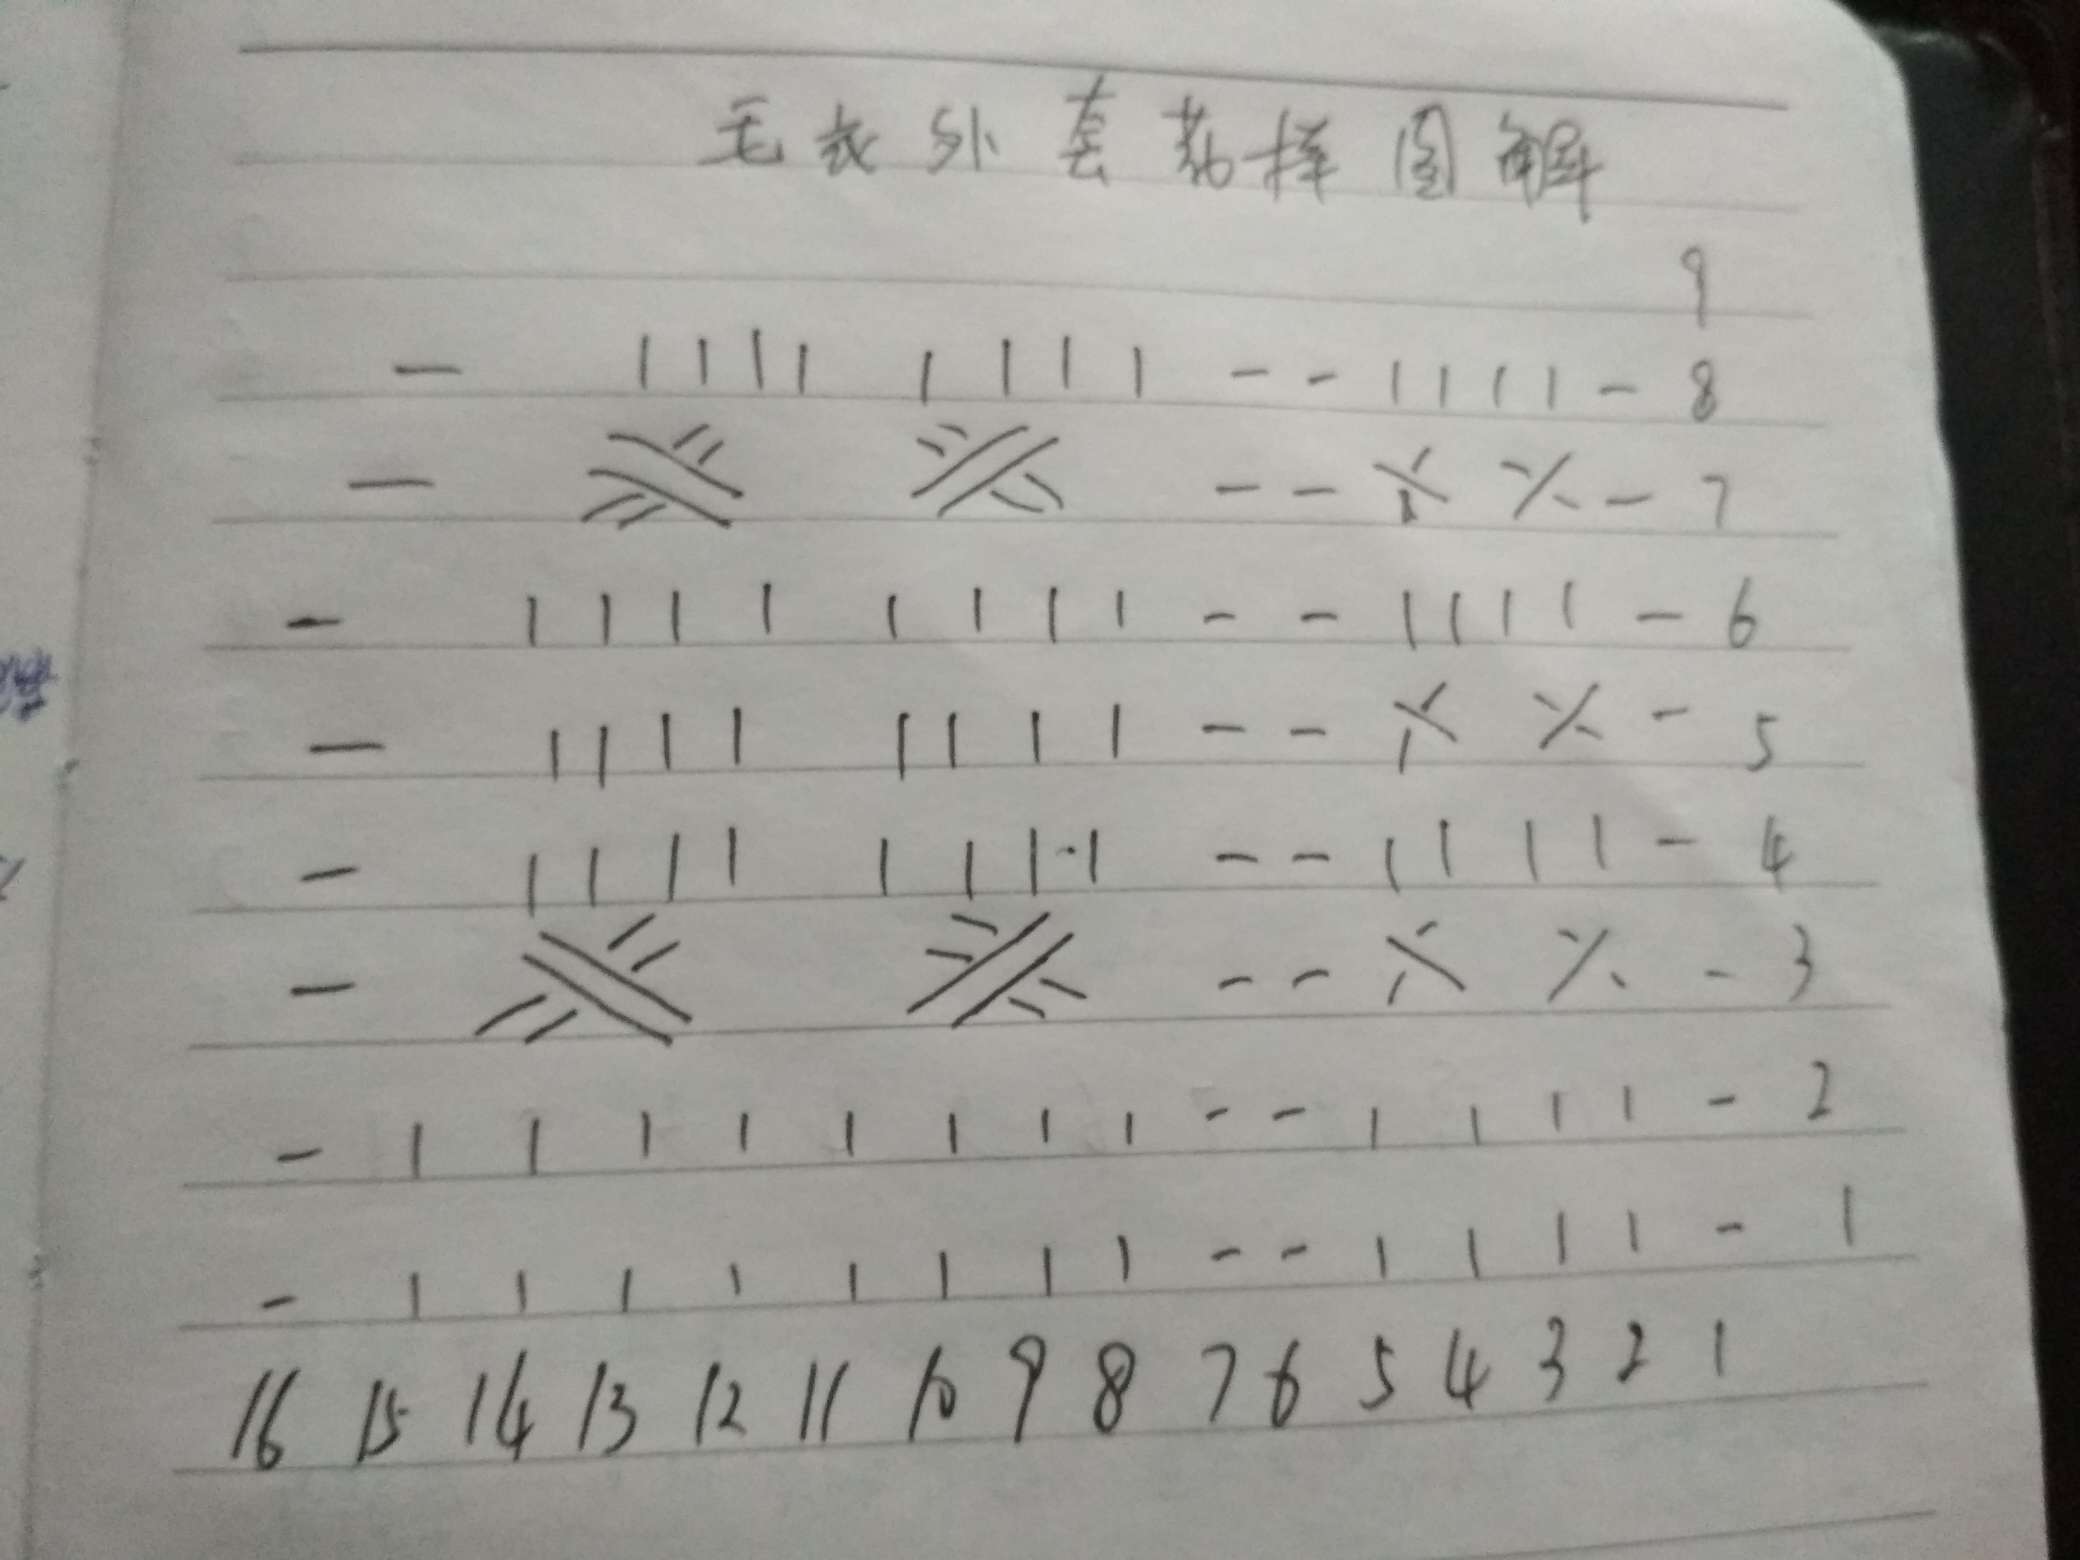 毛衣外套花样图解
9
- | | | | | | | | - - | | | | - 8
- - - - 7
- | | | | | | | | - - | | | | - 6
- | | | | | | | | - - - 5
- | | | | | | | | - - | | | | - 4
- - - - 3
- | | | | | | | | - - | | | | - 2
- | | | | | | | | - - | | | | - 1
16 15 14 13 12 11 10 9 8 7 6 5 4 3 2 1